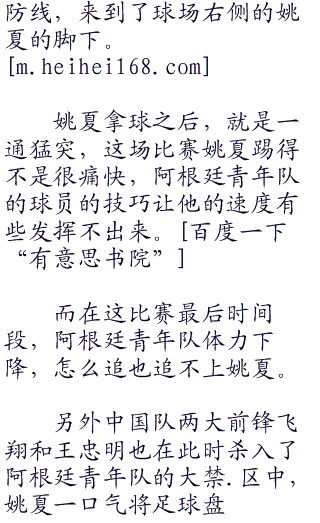 防线，来到了球场右侧的姚
夏的脚下。
[m.heihei168.com]
姚夏拿球之后，就是一
通猛突，这场比赛姚夏踢得
不是很痛快，阿根廷青年队
的球员的技巧让他的速度有
些发挥不出来。[百度一下
“有意思书院”]
而在这比赛最后时间
段，阿根廷青年队体力下
降，怎么追也追不上姚夏。
另外中国队两大前锋飞
翔和王忠明也在此时杀入了
阿根廷青年队的大禁.区中，
姚夏一口气将足球盘